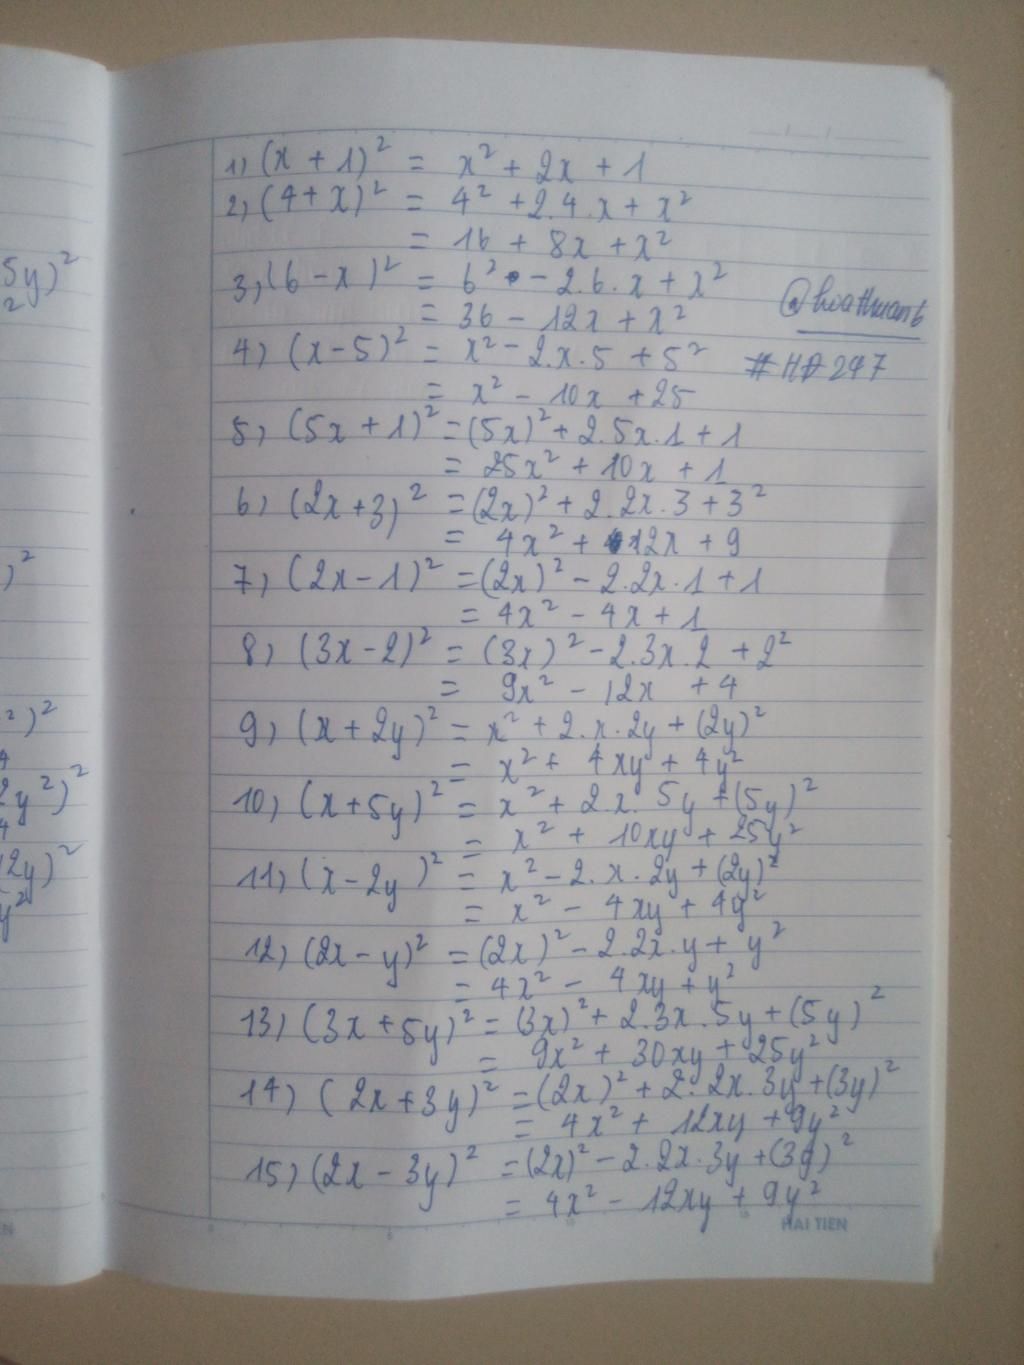 5y)²
2
)²
²)²
4
2y²)²
4
(2y)²
y²
1) (x + 1)² = x² + 2x + 1
2) (4 + x)² = 4² + 2.4.x + x²
= 16 + 8x + x²
3) (6 - x)² = 6² - 2.6.x + x²
= 36 - 12x + x²
@hoathuan6
4) (x - 5)² = x² - 2.x.5 + 5²
#HD247
= x² - 10x + 25
5) (5x + 1)² = (5x)² + 2.5x.1 + 1
= 25x² + 10x + 1
6) (2x + 3)² = (2x)² + 2.2x.3 + 3²
= 4x² + 12x + 9
7) (2x - 1)² = (2x)² - 2.2x.1 + 1
= 4x² - 4x + 1
8) (3x - 2)² = (3x)² - 2.3x.2 + 2²
= 9x² - 12x + 4
9) (x + 2y)² = x² + 2.x.2y + (2y)²
= x² + 4xy + 4y²
10) (x + 5y)² = x² + 2x.5y + (5y)²
= x² + 10xy + 25y²
11) (x - 2y)² = x² - 2.x.2y + (2y)²
= x² - 4xy + 4y²
12) (2x - y)² = (2x)² - 2.2x.y + y²
= 4x² - 4xy + y²
13) (3x + 5y)² = (3x)² + 2.3x.5y + (5y)²
= 9x² + 30xy + 25y²
14) (2x + 3y)² = (2x)² + 2.2x.3y + (3y)²
= 4x² + 12xy + 9y²
15) (2x - 3y)² = (2x)² - 2.2x.3y + (3y)²
= 4x² - 12xy + 9y²
HAI TIEN